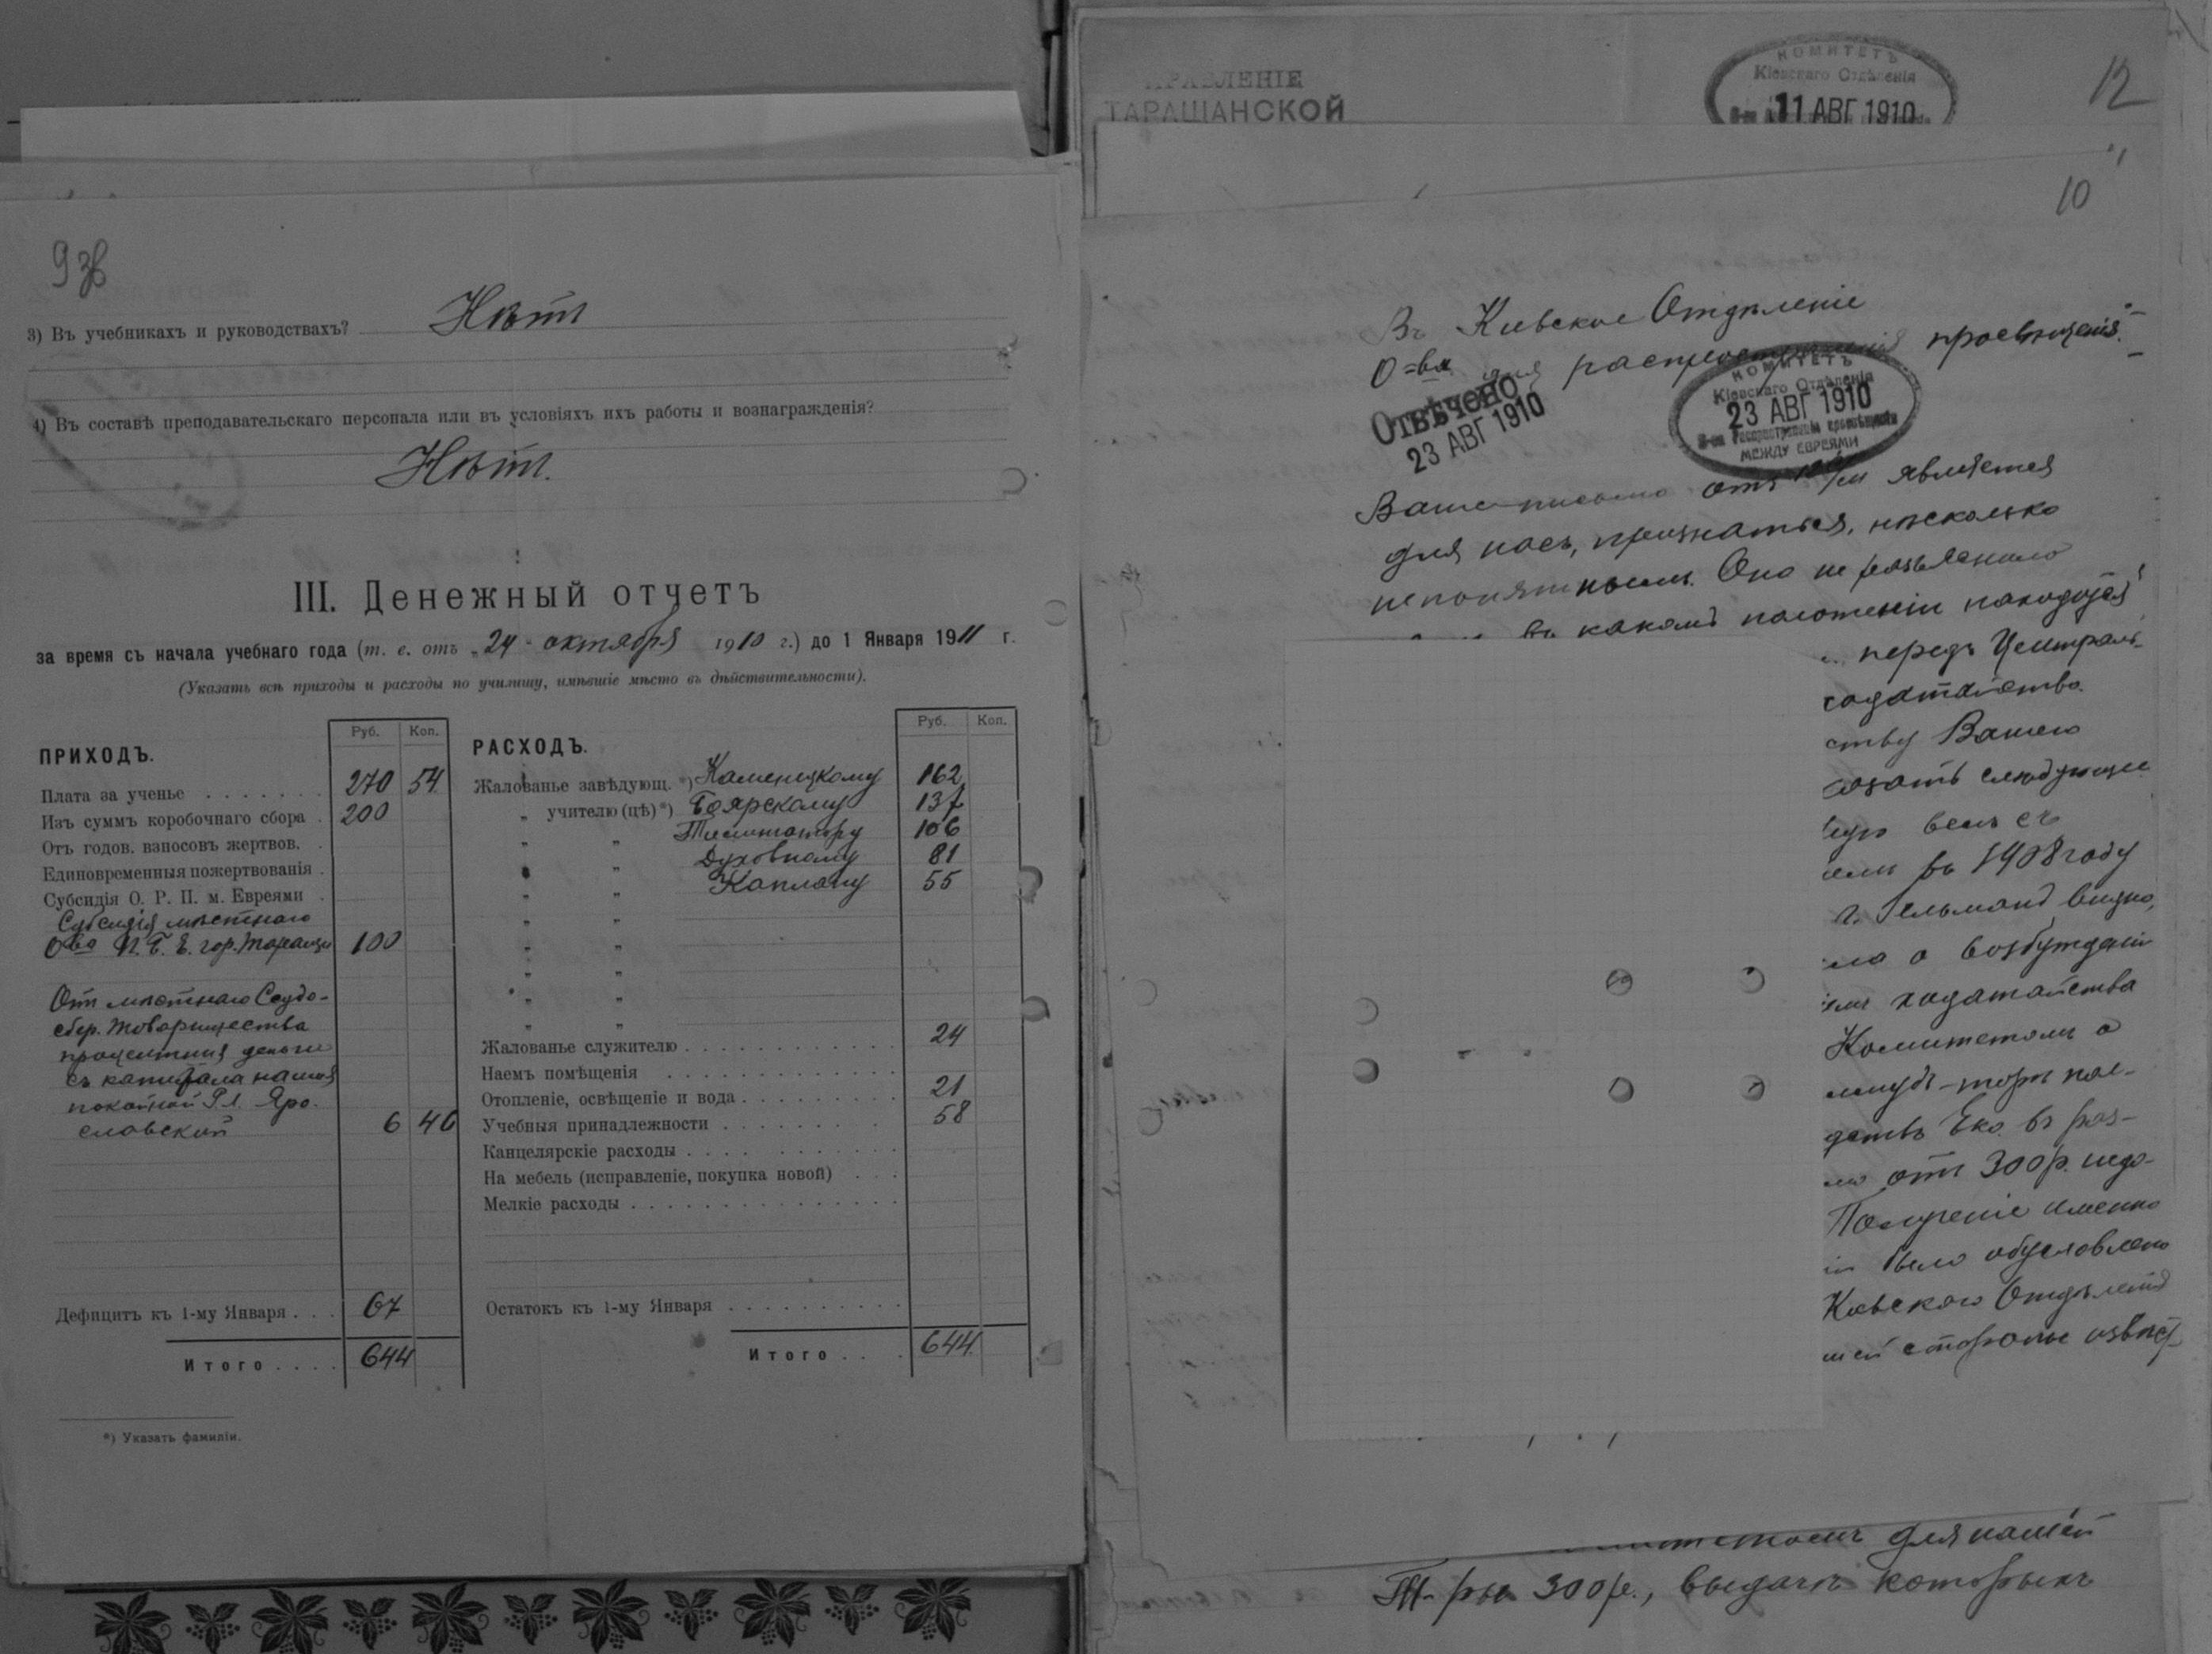 9 зв
3) Въ учебникахъ и руководствахъ? Нѣтъ
4) Въ составѣ преподавательскаго персонала или въ условіяхъ ихъ работы и вознагражденія?
Нѣтъ.
III. Денежный отчетъ
за время съ начала учебнаго года (т. е. отъ „24 октября 1910 г.) до 1 Января 1911 г.
(Указать всѣ приходы и расходы по училищу, имѣвшіе мѣсто въ дѣйствительности).
ПРИХОДЪ.
Руб. Коп.
Плата за ученье 270 54
Изъ суммъ коробочнаго сбора 200
Отъ годов. взносовъ жертвов.
Единовременныя пожертвованія
Субсидія О. Р. П. м. Евреями
Субсидія мѣстнаго
О-ва П. Б. Е. гор. Таращи 100
От мѣстнаго Ссудо-
сбер. товарищества
процентныя деньги
съ капитала
покойной Гл. Яро-
славской 6 46
Дефицитъ къ 1-му Января 67
Итого 644
*) Указать фамиліи.
РАСХОДЪ.
Руб. Коп.
Жалованье завѣдующ. *) Каменецкому 162
„ учителю (цѣ) *) Боярскому 137
„ „ 106
„ „ Духовному 81
„ „ Каплану 55
„ „
„ „
„ „
„ „
„ „
Жалованье служителю 24
Наемъ помѣщенія
Отопленіе, освѣщеніе и вода 21
Учебныя принадлежности 58
Канцелярскіе расходы
На мебель (исправленіе, покупка новой)
Мелкіе расходы
Остатокъ къ 1-му Января
Итого 644
ПРАВЛЕНІЕ
ТАРАЩАНСКОЙ
КОМИТЕТЪ
Кіевскаго Отдѣленія
11 АВГ 1910
12
10
Въ Киевское Отдѣленіе
О-ва для распространенія просвѣщенія
Отвѣчено
23 АВГ 1910
КОМИТЕТЪ
Кіевскаго Отдѣленія
23 АВГ 1910
О-ва Распространенія просвѣщенія
МЕЖДУ ЕВРЕЯМИ
Ваше письмо отъ является
для насъ, признаться, нѣсколько
непонятнымъ. Оно не разъяснило
въ какомъ положеніи находится
передъ Централь-
ходатайство.
ству Вашего
слѣдующее
весь съ
въ 1908 году
г. Гельманъ видно,
о возбужденіи
ходатайства
Комитетомъ о
отъ 300 р. недо-
Полученіе именно
было обусловлено
Киевскаго Отдѣленія
сторонѣ
для нашей
300 р., выдачѣ которыхъ